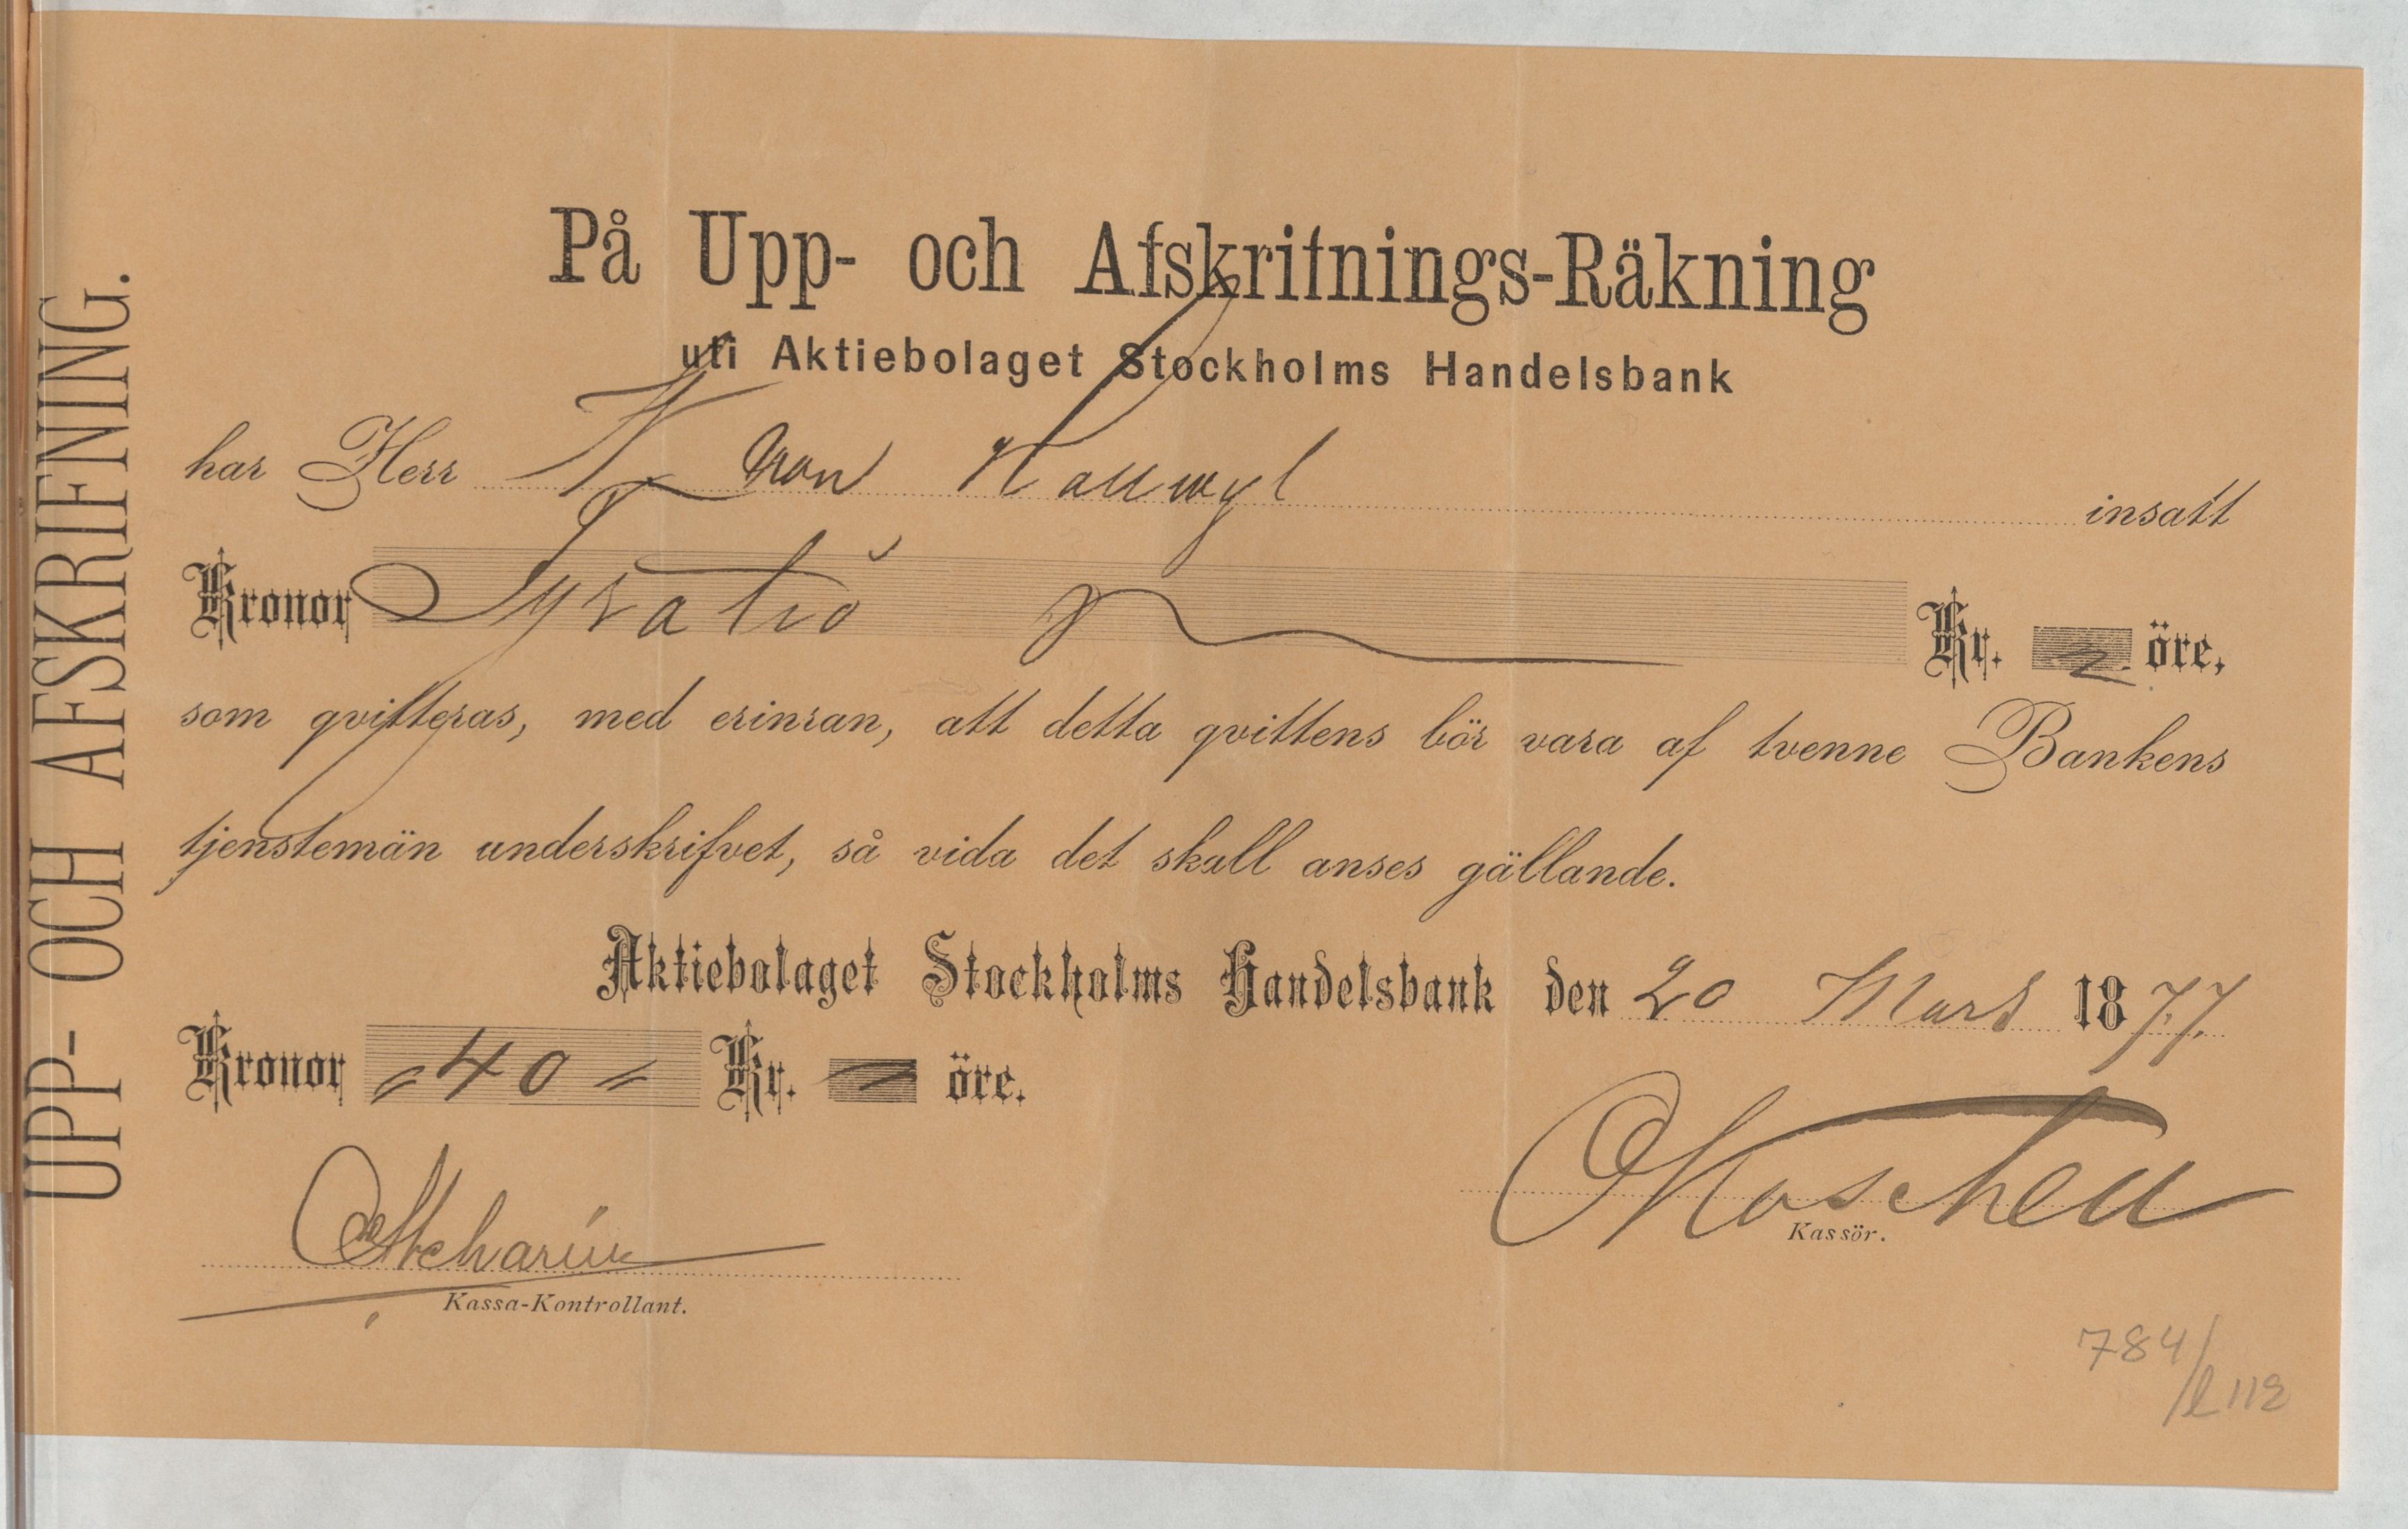 UPP- OCH AFSKRIFNING.
På Upp- och Afskrifnings-Räkning
uti Aktiebolaget Stockholms Handelsbank
har Herr W von Hallwyl insatt
Kronor Fyratio Kr. öre,
som qvitteras, med erinran, att detta qvittens bör vara af tvenne Bankens
tjenstemän underskrifvet, så vida det skall anses gällande.
Aktiebolaget Stockholms Handelsbank den 20 Mars 1877.
Kronor = 40 = Kr. öre.
Kassör.
Kassa-Kontrollant.
784/